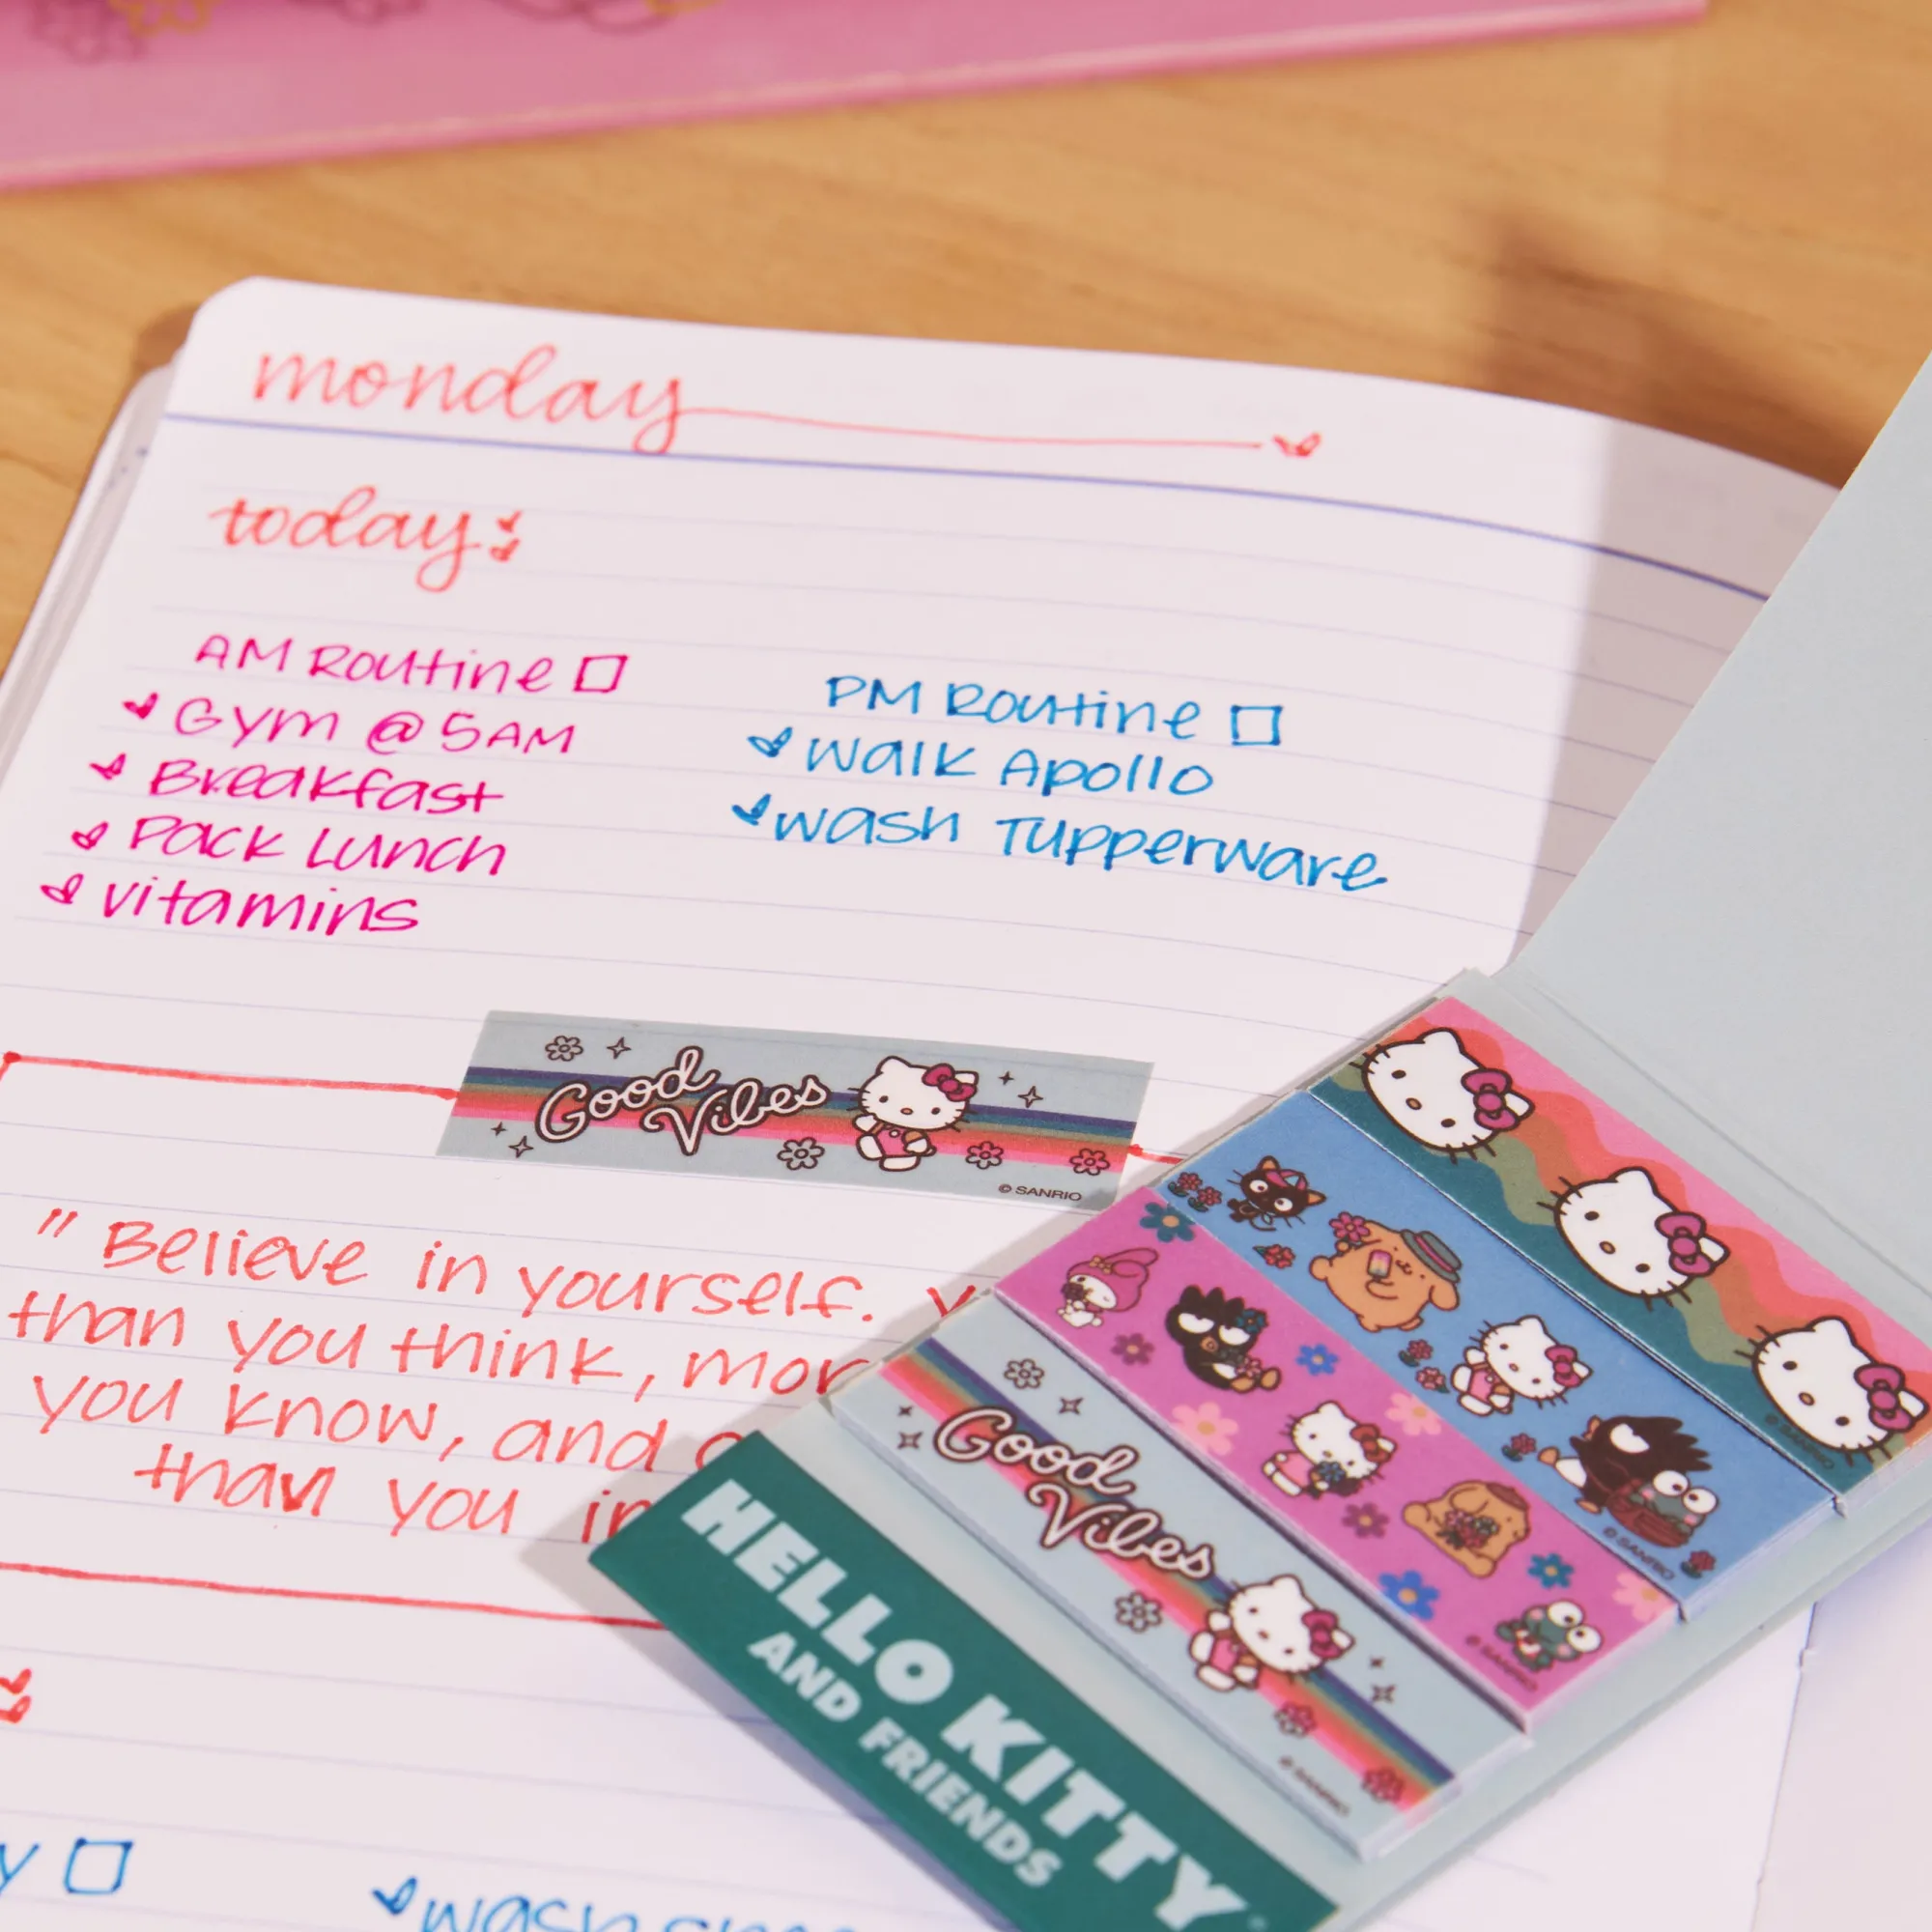 monday
today:
AM Routine
Gym @ 5AM
Breakfast
Pack Lunch
vitamins
PM Routine
walk Apollo
wash Tupperware
Good
Vibes
© SANRIO
" Believe in yourself.
than you think,
you know, and
than you
wash
© SANRIO
© SANRIO
© SANRIO
Good
Vibes
© SANRIO
HELLO KITTY
AND FRIENDS